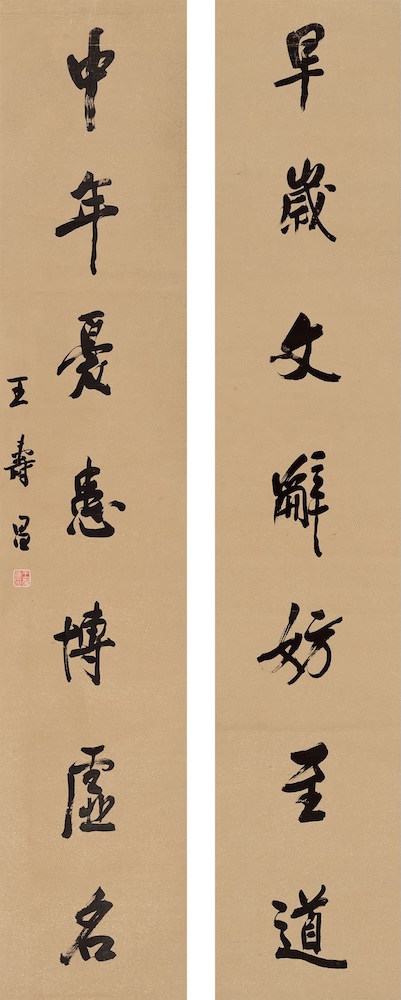 早歲文辭妨至道
中年憂患博虛名
王壽昌